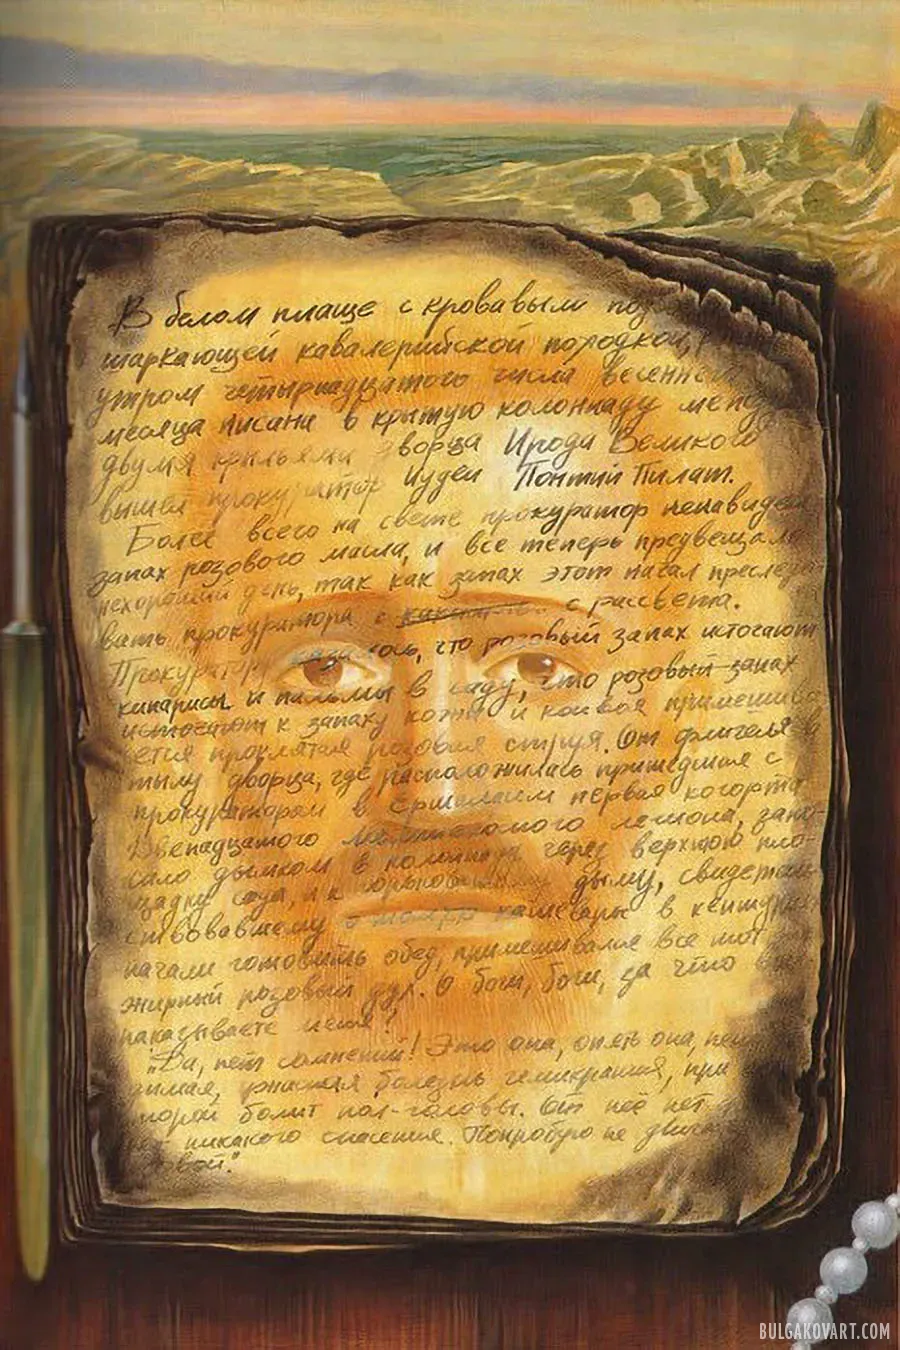 В белом плаще с кровавым
шаркающей кавалерийской походкой,
утром четырнадцатого числа
месяца нисана в крытую колоннаду
двумя крыльями дворца Ирода Великого
вышел прокуратор Иудеи Понтий Пилат.
Более всего на свете прокуратор
запах розового масла, и все теперь
нехороший день, так как запах этот начал
вать прокуратора с рассвета.
Прокуратору казалось, что розовый запах источают
кипарисы и пальмы в саду, что розовый запах
источают к запаху кожи и конвоя
ется проклятая розовая струя. От флигеля в
тылу дворца, где расположилась пришедшая с
прокуратором в Ершалаим первая когорта
Двенадцатого легиона,
дымком в колоннаду через верхнюю пло-
щадку сада, и к дыму,
ствовавшему о том, кашевары в
начали готовить обед, примешивался все тот
жирный розовый дух. О боги, боги, за что
наказываете меня?
"Да, нет сомнений! Это она, опять она,
ужасная болезнь гемикрания, при
болит пол-головы. От неё нет
никакого спасения. Попробую не

BULGAKOVART.COM